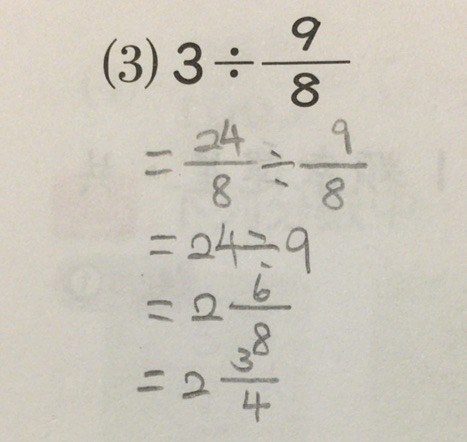 (3) 3 ÷ 9/8
= 24/8 ÷ 9/8
= 24 ÷ 9
= 2 6/8
= 2 3/4